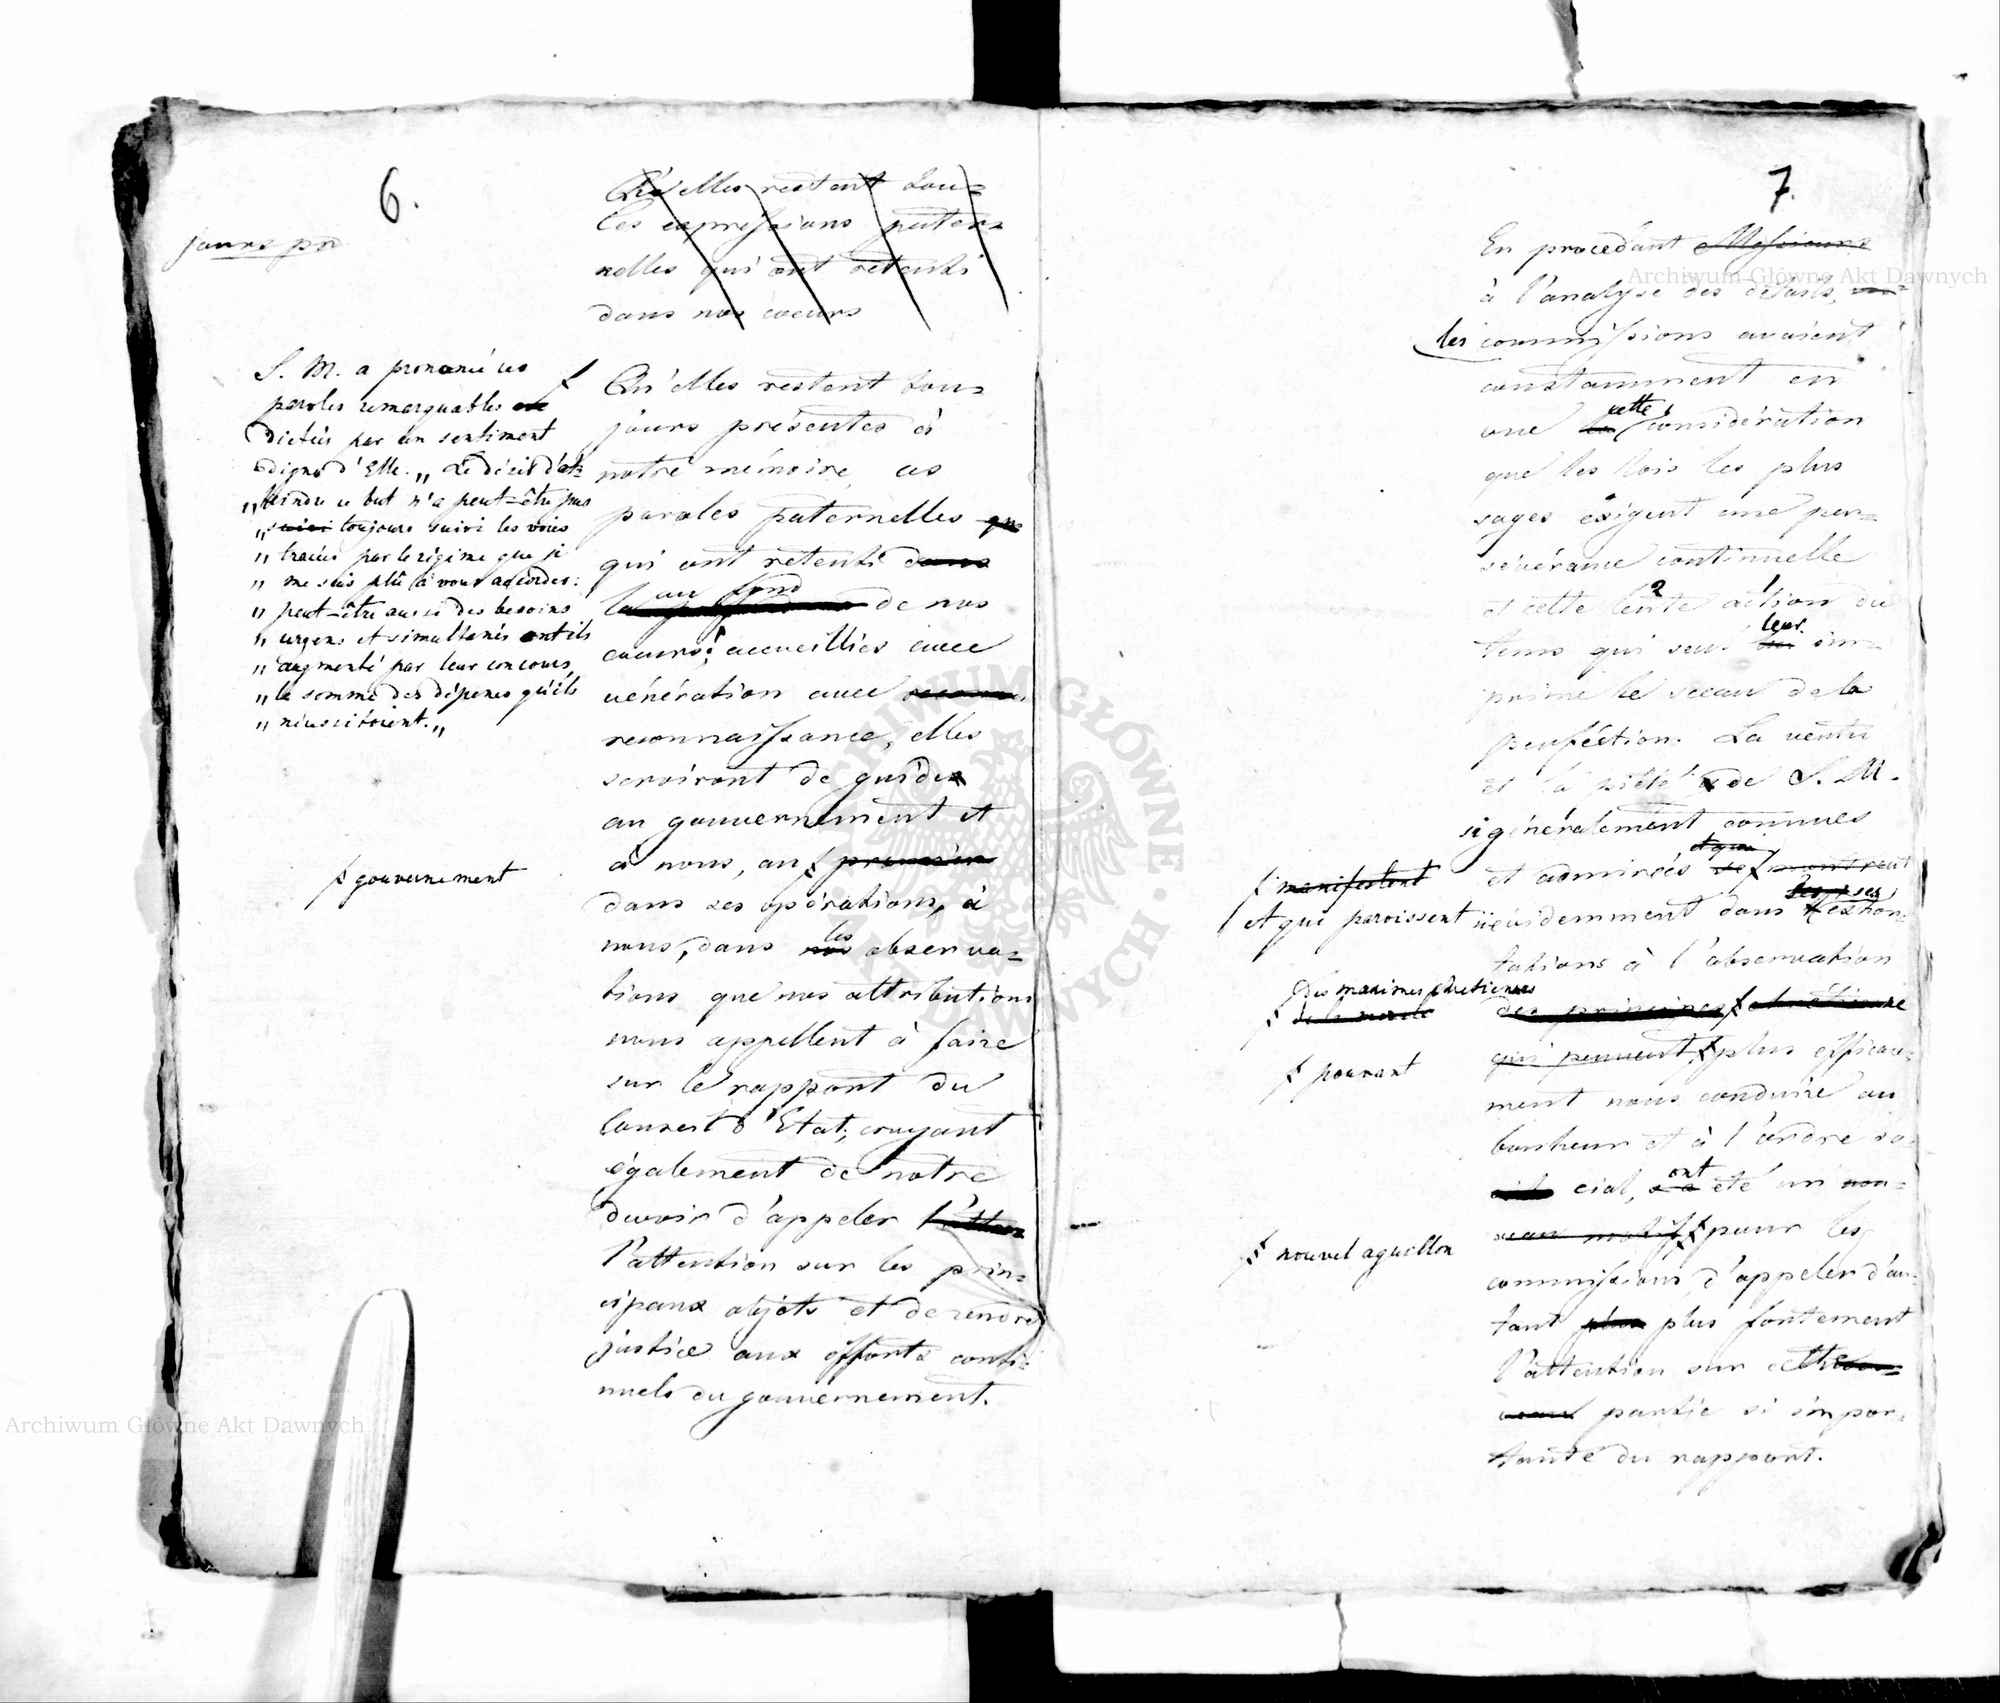 6.
Qu'elles restent tou=
les expressions pater=
nelles qui ont retenti
dans nos coeurs
jours pr
S. M. a prononcé ces
paroles remarquables
dictées par un sentiment
digne d'Elle. „ Le désir d'at=
„ teindre ce but n'a peut-être pas
„ suivi toujours suivi les voies
„ tracées par le régime que je
„ me suis plû à vous accorder:
„ peut-être aussi des besoins
„ urgens et simultanés ont ils
„ augmenté par leur concours,
„ la somme des dépenses qu'ils
„ nécessitoient. „
Qu'elles restent tou=
jours présentes à
notre mémoire, ces
paroles paternelles que
qui ont retenti dans
au fond
de nos
coeurs! accueillies avec
vénération avec
reconnaissance, elles
serviront de guide
au gouvernement et
à nous, au premier
gouvernement
dans ses opérations, à
les
nous, dans nos observa=
tions que nos attributions
nous appellent à faire
sur le rapport du
Conseil d'Etat; croyant
également de notre
devoir d'appeler l'atten
l'attention sur les prin=
cipaux objets et de rendre
justice aux efforts conti=
nuels du gouvernement.
7.
En procédant Messieurs
à l'analyse des détails,
les commissions avaient
constamment en
cette
vue la considération
que les lois les plus
sages exigent une per=
sévérance continuelle
et cette lente action du
leur
tems qui seul im=
prime le sceau de la
perfection. La vertu
et la piété de S. M.
si généralement connues
et qui
et admirées se montrent
manifestent
et qui paroissent
ses
évidemment dans exhor=
tations à l'observation
des maximes chrétiennes
de la morale
des principes chrétienne
qui peuvent plus efficace=
pouvant
ment nous conduire au
bonheur et à l'ordre so=
ont
cial, a été un nou=
veau motif pour les
nouvel aguillon
commissions d'appeler d'au=
tant plus plus fortement
l'attention sur cette
partie si impor=
tante du rapport.